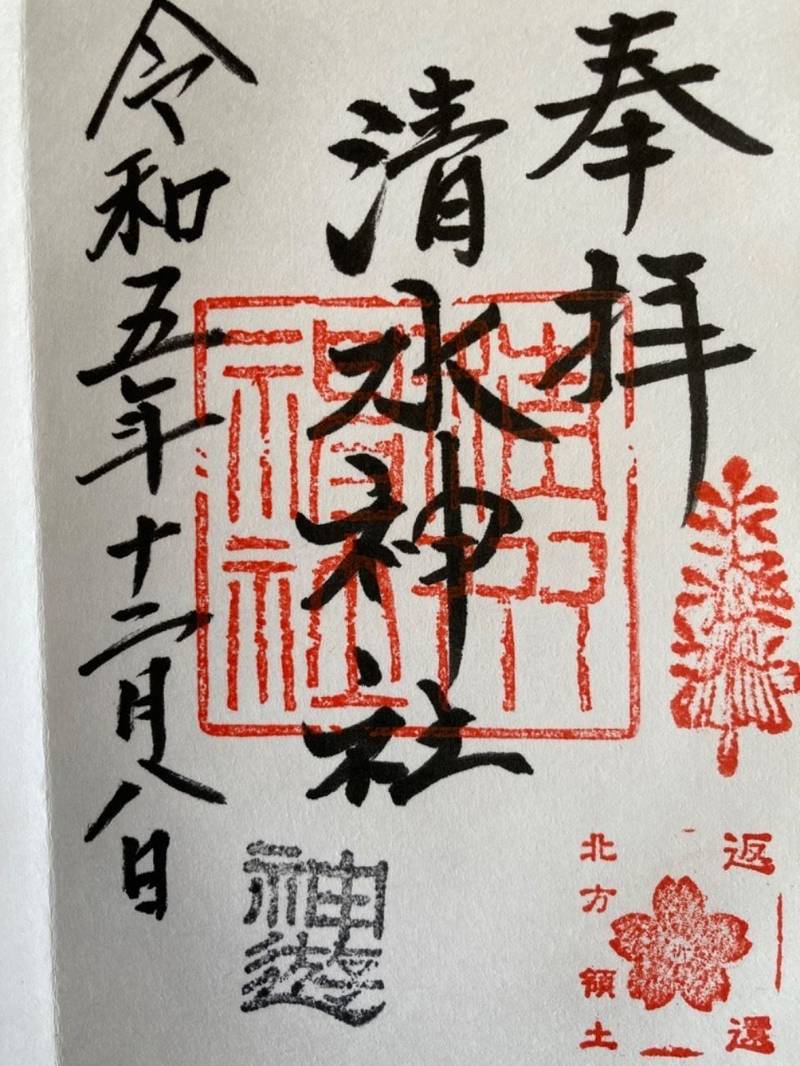 奉拝
清水神社
令和五年十二月八日
返還
北方領土
神遊